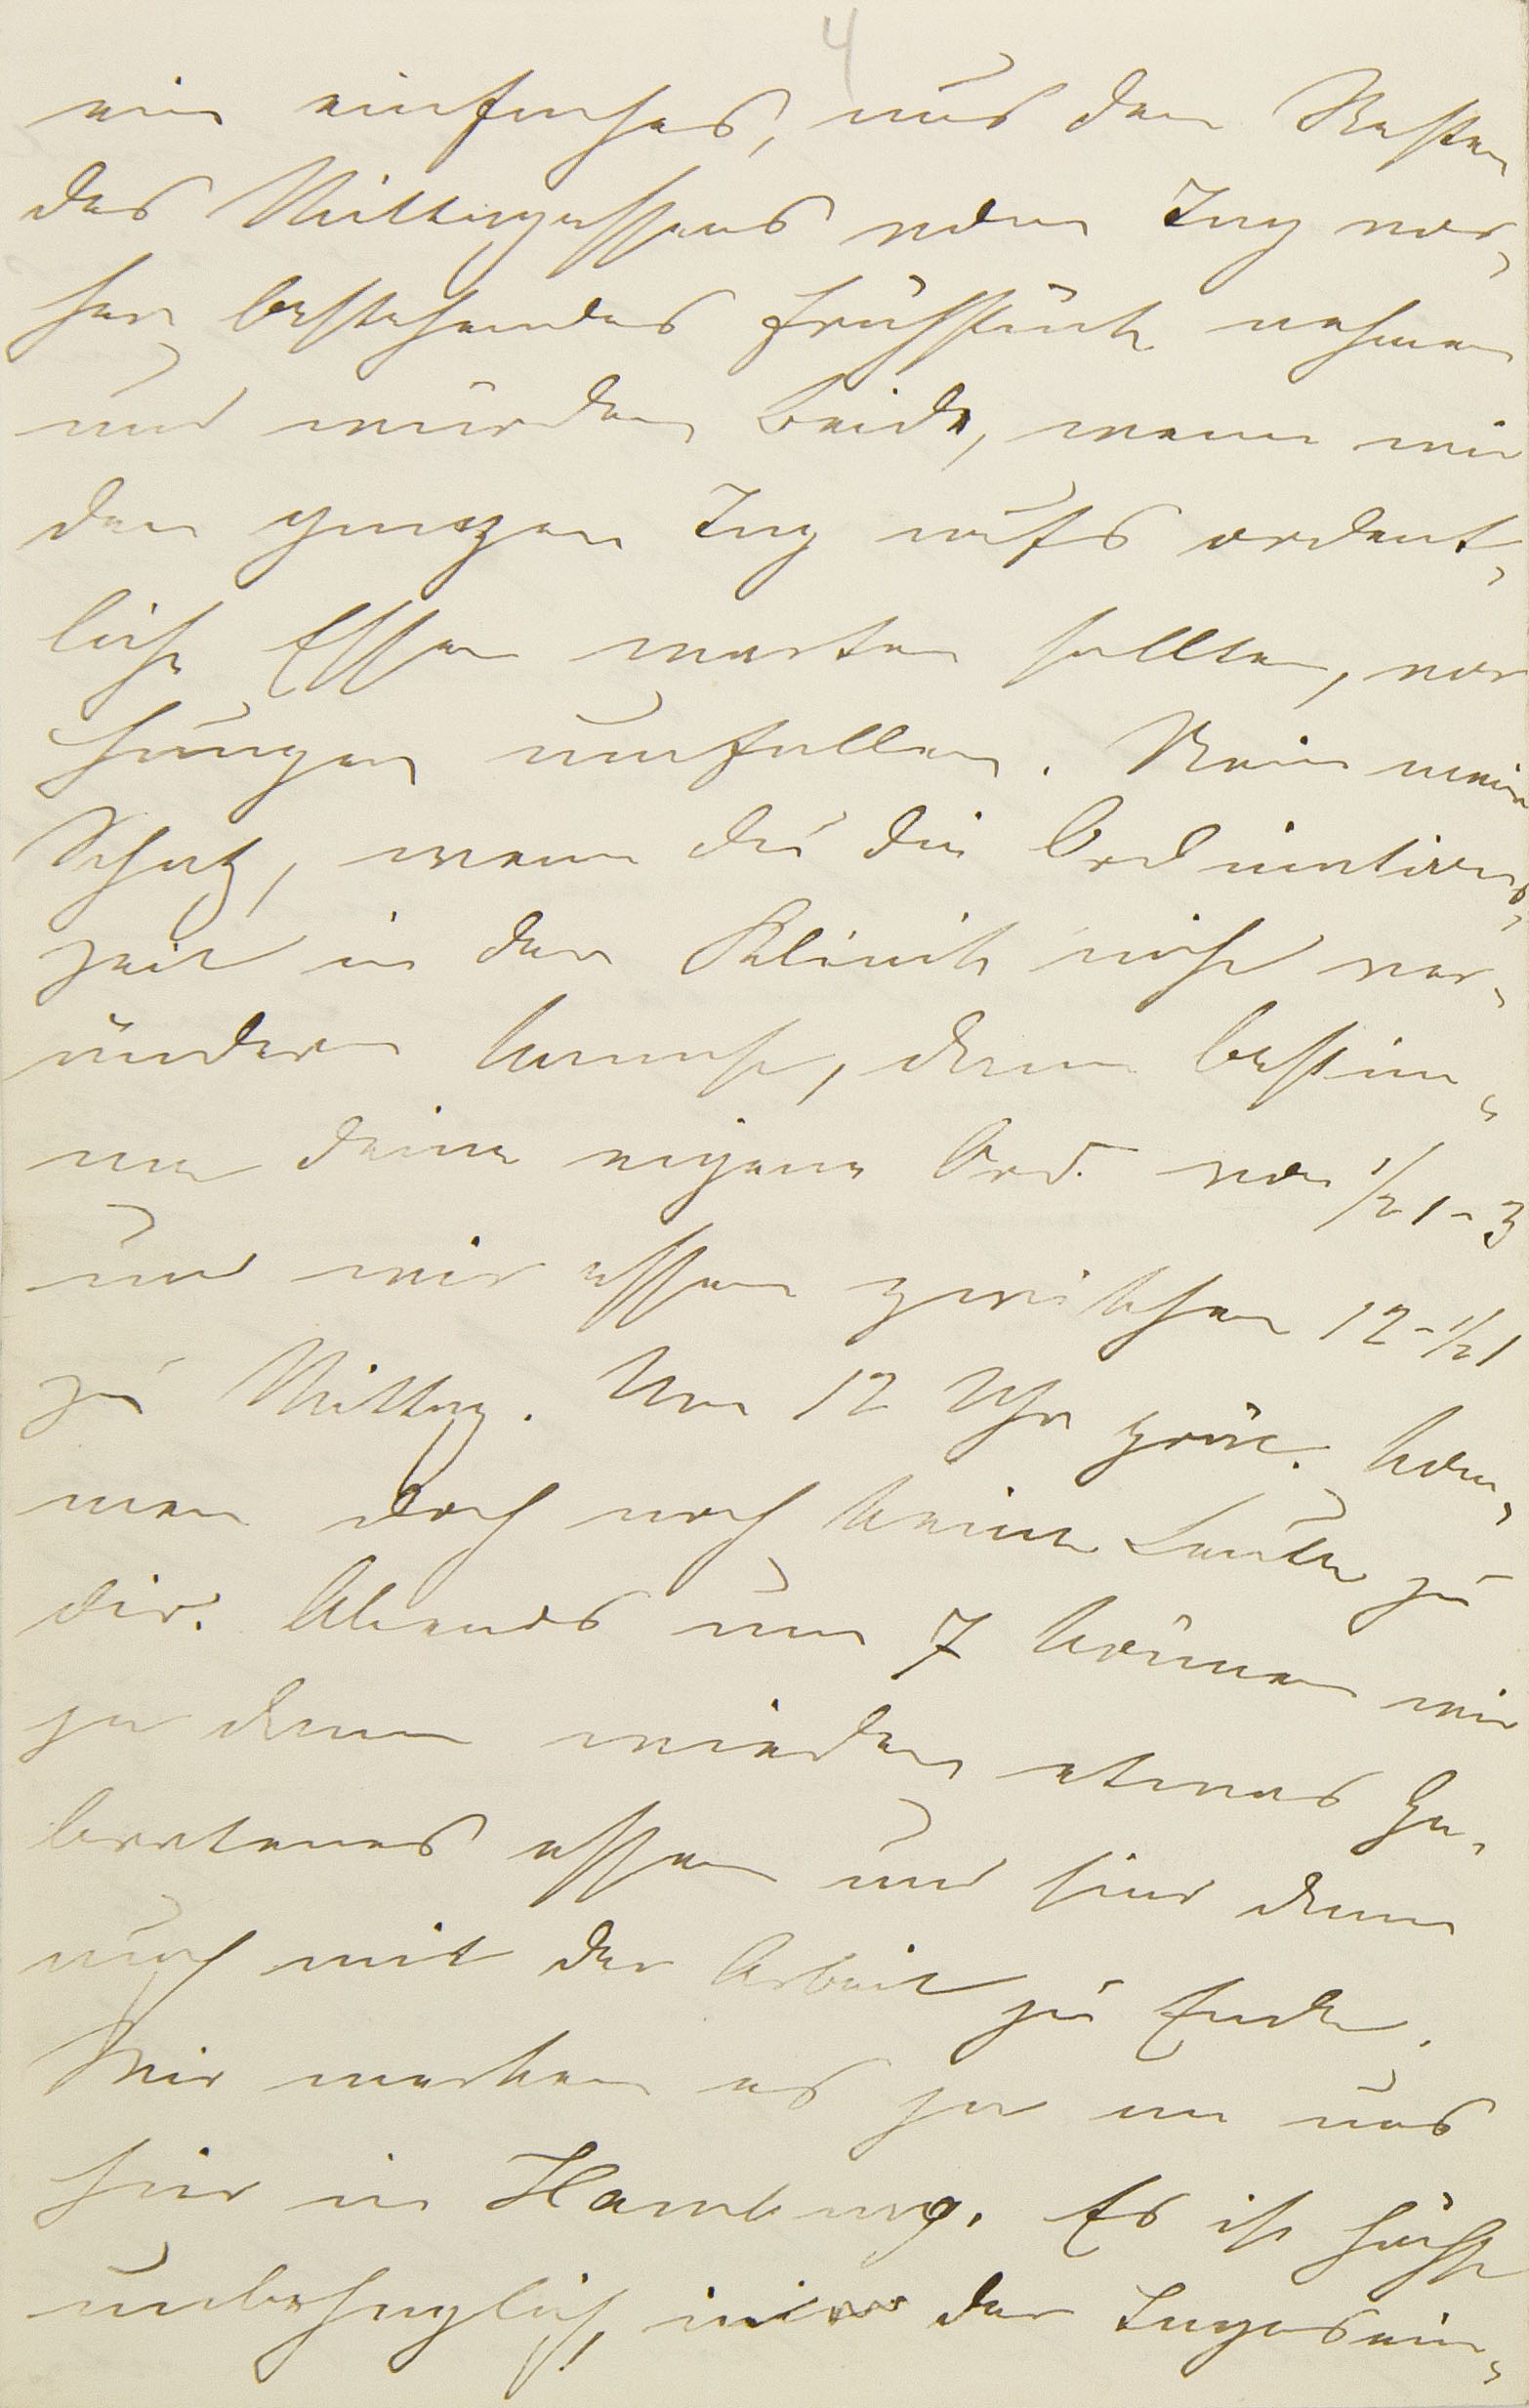 4
ein einfaches, aus den Resten
des Mittagessens vom Tag vor-
her bestehendes Frühstück nehmen
und würden beide, wenn wir
den ganzen Tag aufs ordent-
liche Essen warten sollten, vor
Hunger umfallen. Nein mein
Schatz, wenn du die Ordinations-
zeit in der Klinik nicht ver-
ändern kannst, dann bestim-
me deine eigene Ord. von 1/2 1-3
und wir essen zwischen 12-1/2 1
zu Mittag. Um 12 Uhr präc. kom-
men doch noch keine Leute zu
dir. Abends um 7 können wir
ja dann wieder etwas Ge-
bratenes essen und sind dann
auch mit der Arbeit zu Ende.
Wir merken es ja an uns
hier in Hamburg. Es ist höchst
unbehaglich, in der Tagesein-